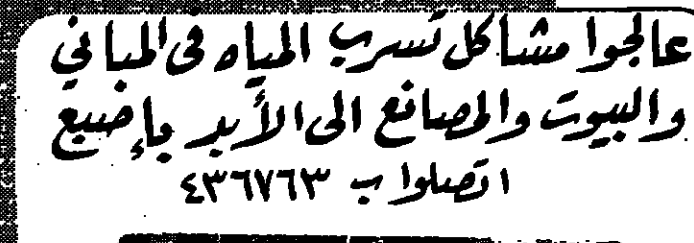 عالجوا مشاكل تسرب المياه فى المباني
والبيوت والمصانع الى الأبد
اتصلوا ب ٤٣٦٧٦٣